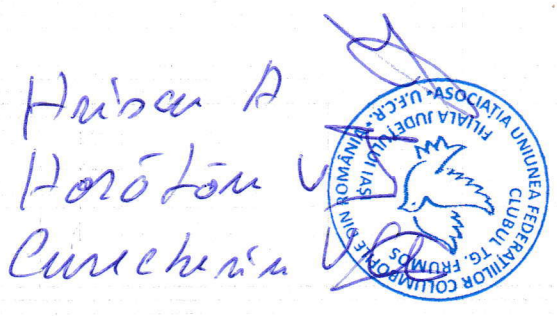 Hriscu A
Curecheriu V
ASOCIAȚIA UNIUNEA FEDERAȚIILOR COLUMBOFILE DIN ROMÂNIA * U.F.C.R. *
FILIALA JUDEȚULUI IAȘI
CLUBUL TG. FRUMOS